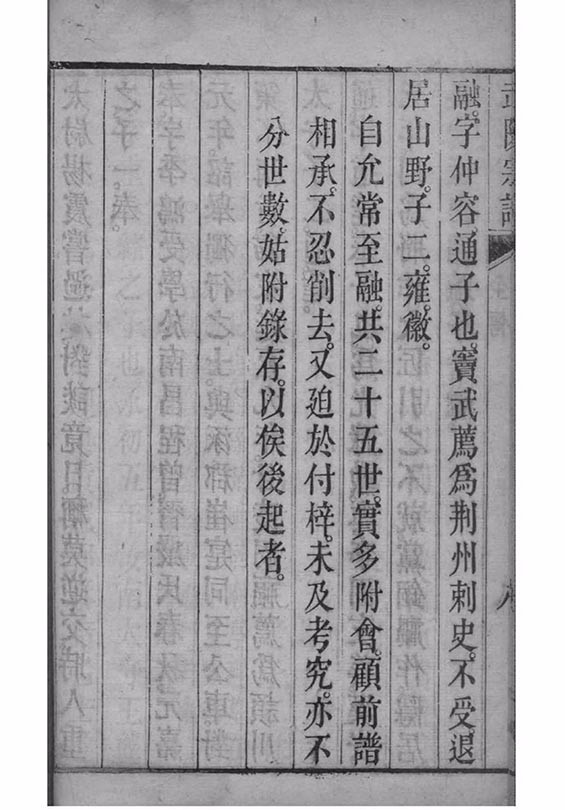 融。字仲容。通子也。竇武薦爲荆州刺史。不受。退
居山野。子二。雍。徽。
自允常至融。共二十五世。實多附會。顧前譜
相承。不忍削去。又迫於付梓。未及考究。亦不
分世數。姑附錄存。以俟後起者。